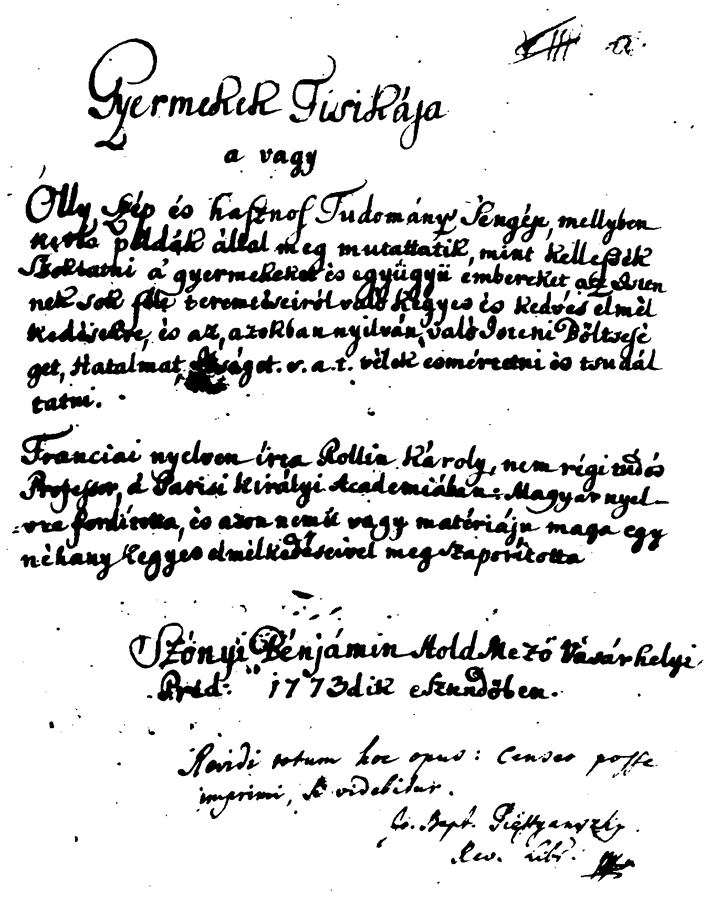 Gyermekek Fisikája
a vagy
Olly szép és hasznos Tudomány Sengéje, mellyben
példák által meg mutattatik, mint kellessék
Szoktatni a' gyermekeket és együgyü embereket az Isten
nek sok féle teremtéseiről való kegyes és kedves elmél
kedésekre, és az, azokban nyilván való Isteni Böltsesé
get, Hatalmat, Jóságot. v. a. t. vélek esmértetni és tsudál
tatni.
Franciai nyelven írta Rollin Károly, nem régi tudós
Professor, á Parisi királyi Academiában: Magyar nyel-
vre fordította, és azon nemű vagy matériáju maga egy
néhány kegyes elmélkedéseivel meg szaporította
Szőnyi Bénjámin Hold Mező Vásárhelyi
Préd: 1773dik esztendőben.
Revidi totum hoc opus: Censeo posse
imprimi, si videbitur.
Jo. Bapt.
Rev. Libr.